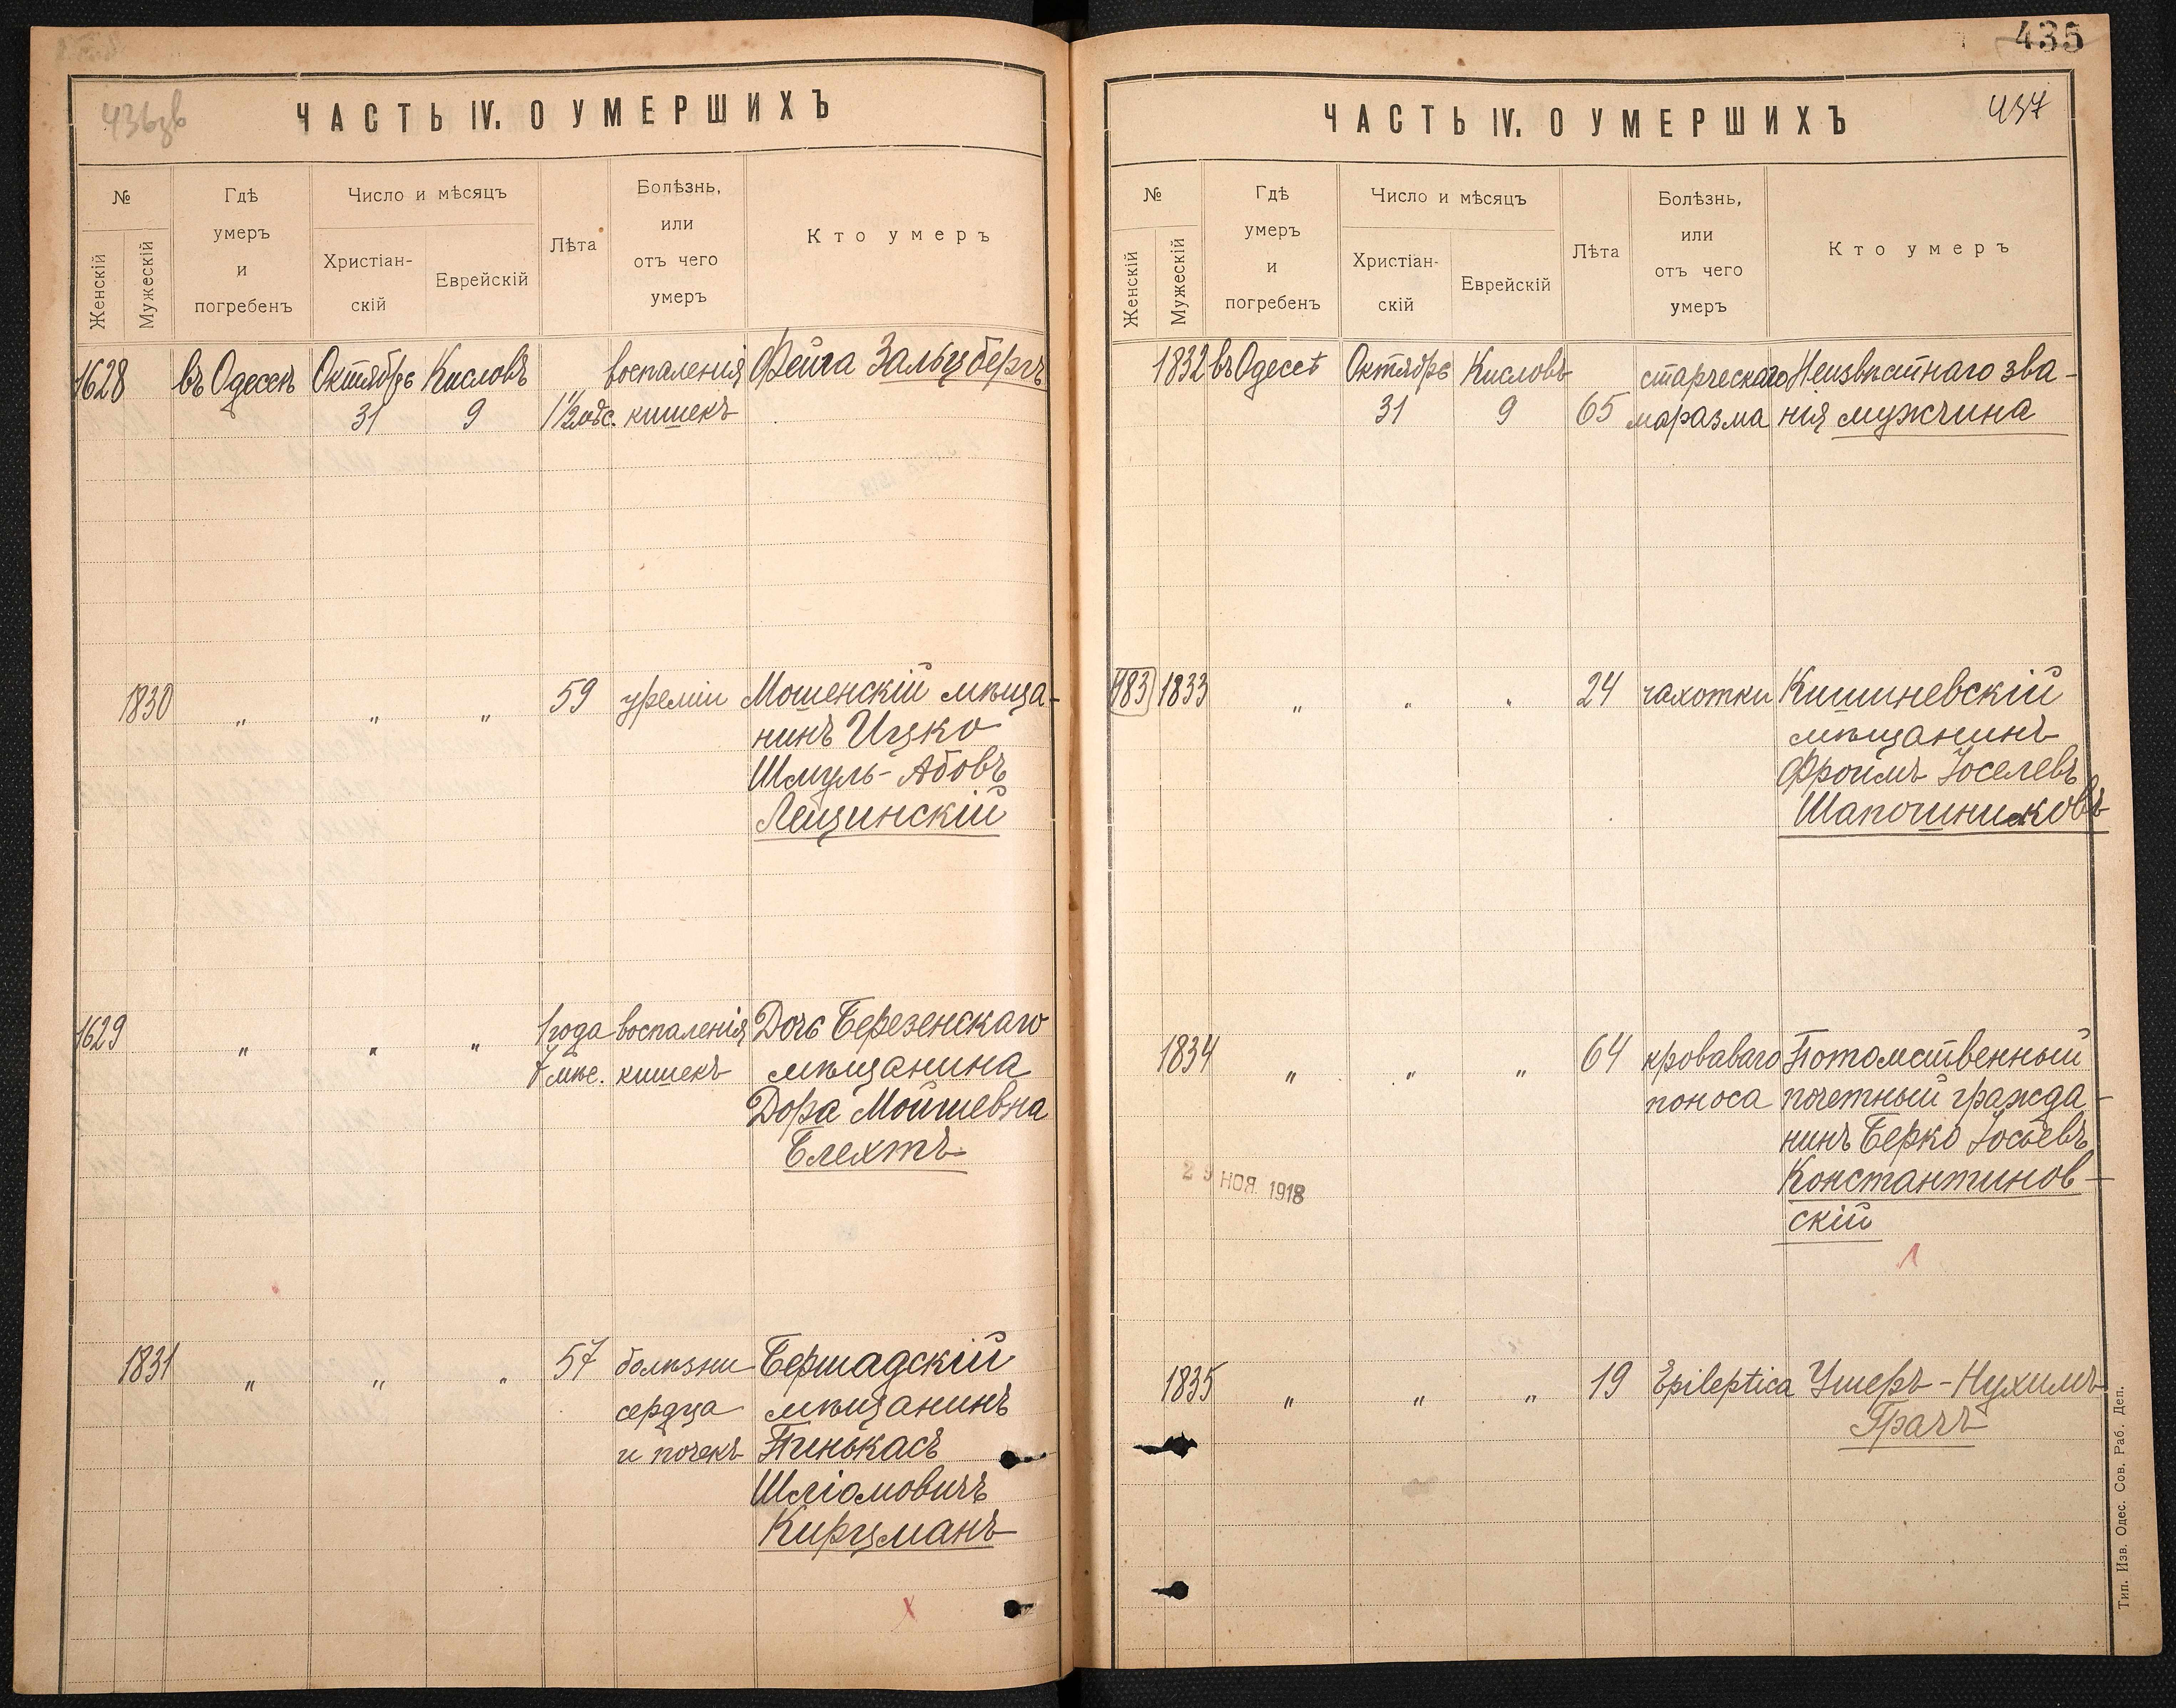 436зв
ЧАСТЬ IV. О УМЕРШИХЪ
№
Женскій
Мужескій
Гдѣ
умеръ
и
погребенъ
Число и мѣсяцъ
Христіан-
скій
Еврейскій
Лѣта
Болѣзнь,
или
отъ чего
умеръ
Кто умеръ
1628 въ Одессѣ Октябрь Кисловъ воспаленія Фейга Зальцбергъ
31 9 1½ мѣс. кишекъ
1830 " " " 59 уреміи Мошенскій мѣща-
нинъ Ицко
Шмуль-Абовъ
Лещинскій
1629 " " " 1 года воспаленія Дочь Березенскаго
7 мѣс. кишекъ мѣщанина
Дора Мойшевна
Блехтъ
1831 " " " 57 болѣзни Бершадскій
сердца мѣщанинъ
и почекъ Пинькасъ
Шліомовичъ
Кирцманъ
435
437
ЧАСТЬ IV. О УМЕРШИХЪ
№
Женскій
Мужескій
Гдѣ
умеръ
и
погребенъ
Число и мѣсяцъ
Христіан-
скій
Еврейскій
Лѣта
Болѣзнь,
или
отъ чего
умеръ
Кто умеръ
1832 въ Одессѣ Октябрь Кисловъ старческаго Неизвѣстнаго зва-
31 9 65 маразма нія мужчина
483 1833 " " " 24 чахотки Кишиневскій
мѣщанинъ
Фроимъ Іоселевъ
Шапошниковъ
1834 " " " 64 кроваваго Потомственный
поноса почетный гражда-
нинъ Берко Іосьевъ
Константинов-
скій
29 НОЯ. 1918
1835 " " " 19 Epileptica Ушеръ-Нухимъ
Грачъ
Тип. Изв. Одес. Сов. Раб. Деп.